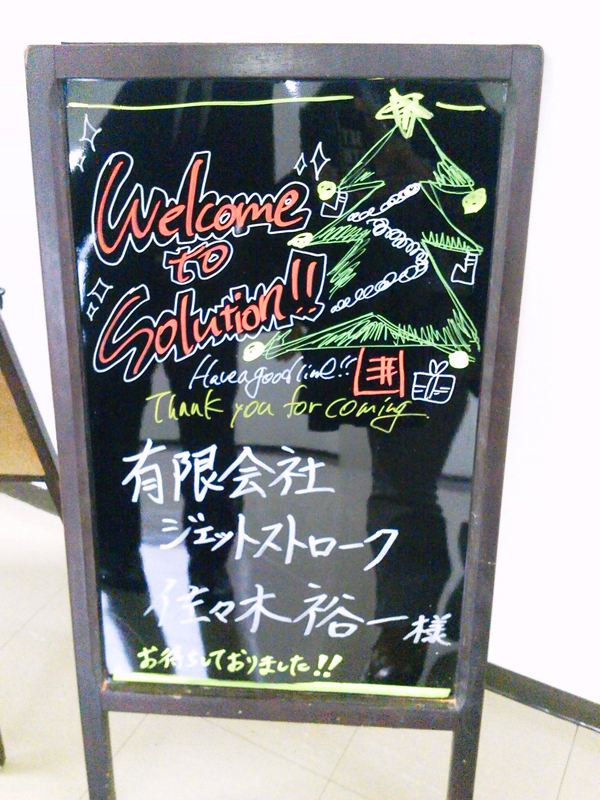 Welcome
to
Solution!!
Have a good time!!
Thank you for coming
有限会社
ジェットストローク
佐々木裕一様
お待ちしておりました!!